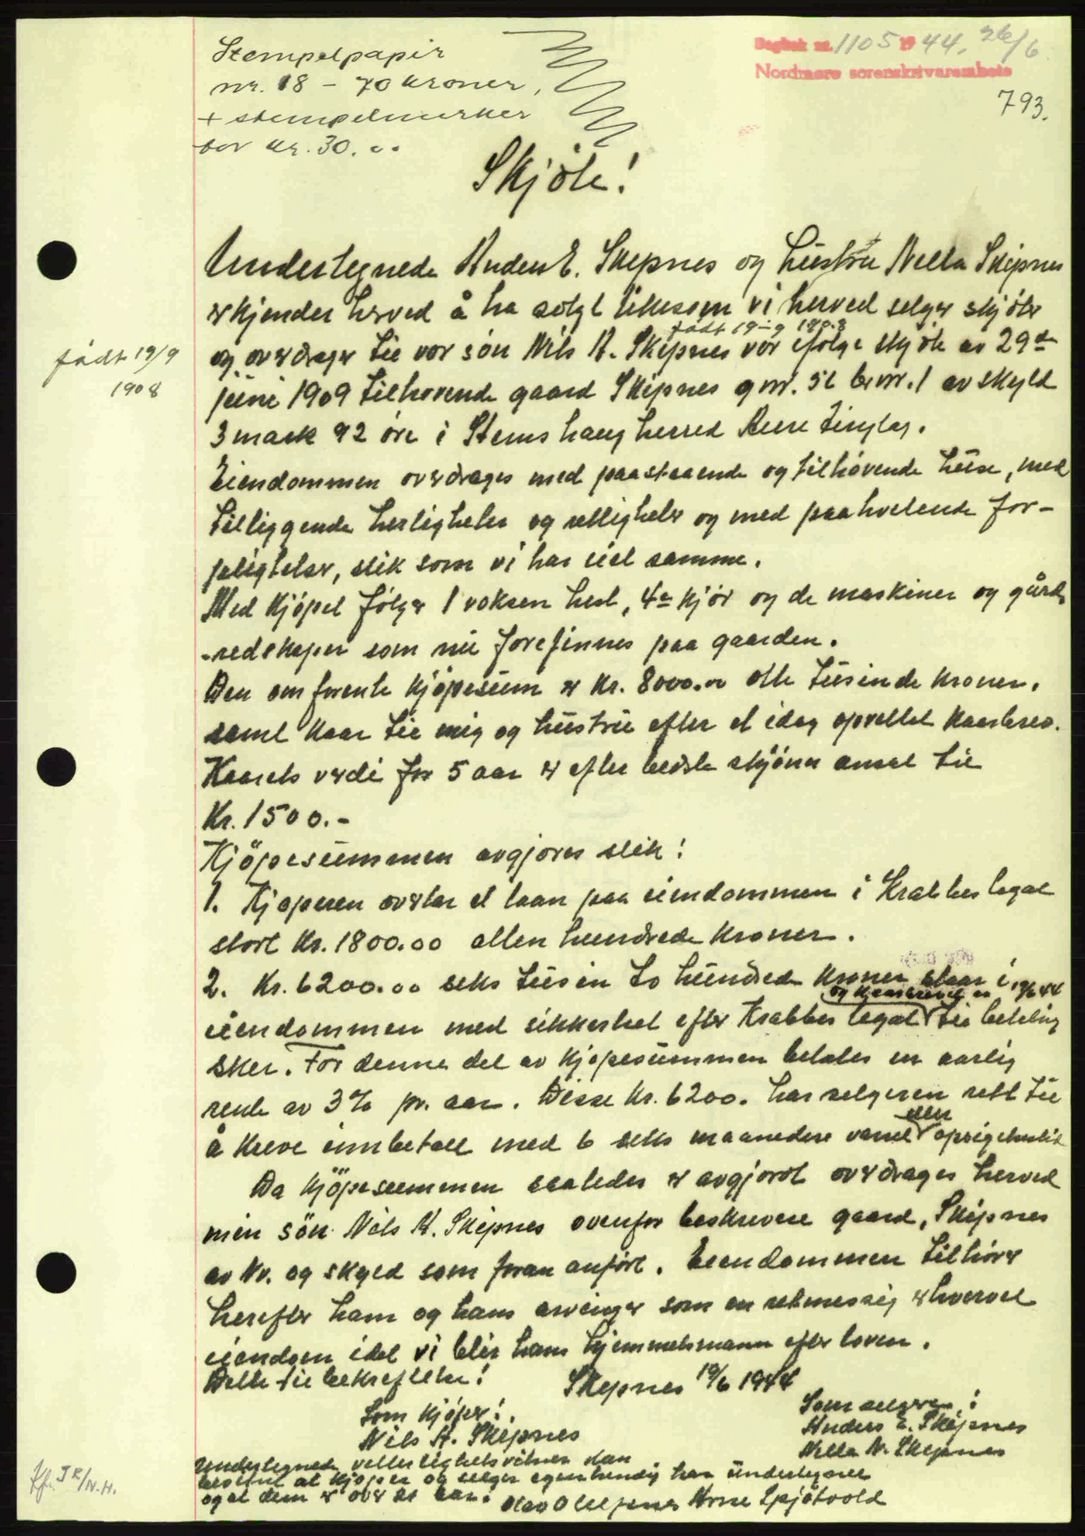 Stempelpapir
nr. 18 - 70 kroner,
+ stempelmerker
for kr. 30.00
Dagbok nr. 1105 1944. 26/6
Nordmøre sorenskriverembete
793.
Skjöte!
Undertegnede Anders E. Skipnes og hustru Nella Skipnes
erkjender herved å ha solgt likesom vi herved selger skjöter
født 19-9 1908
og overdrager til vor sön Nils A. Skipnes vor ifölge skjöte av 29de
født 19/9
1908
juni 1909 tilhörende gaard Skipnes gnr. 51 brnr. 1 av skyld
3 mark 92 öre i Stemshaug herred Aure tinglag.
Eiendommen overdrages med paastaaende og tilhörende huse, med
tilliggende herligheter og rettigheter og med paahvilende for-
pligtelser, slik som vi har eiet samme.
Med kjöpet fölger 1 voksen hest, 4re kjör og de maskiner og gårds
-redskaper som nu forefinnes paa gaarden.
Den omforente kjöpesum er Kr. 8000.00 otte tusinde kroner.
samt kaar til mig og hustru efter et idag oprettet kaarbrev.
Kaarets verdi for 5 aar er efter bedste skjönn ansat til
Kr. 1500.-
Kjöpesummen avgjöres slik:
1. Kjöperen overtar et laan paa eiendommen i Krabbes legat
stort Kr. 1800.00 atten hundrede kroner.
2. Kr. 6200.00 seks tusin to hundrede kroner staar i
og kaarbrevet av 19/6 44
eiendommen med sikkerhet efter Krabbes legat til betaling
sker. For denne del av kjöpesummen betales en aarlig
rente av 3% pr. aar. Disse Kr. 6200. har selgeren rett til
å kreve innbetalt med 6 seks maaneders varsel
Da kjöpesummen saaledes er avgjordt overdrages herved
min sön Nils A. Skipnes ovenfor beskrevene gaard, Skipnes
av Nr. og skyld som foran anfört. Eiendommen tilhörer
herefter ham og hans arvinger som en retmessig erhvervet
eiendom idet vi blir hans hjemmelsmann efter loven.
Dette til bekreftelse!
Skipnes 19/6 1944
Som kjöper:
Nils A. Skipnes
Som selgere:
Anders E. Skipnes
Nella N. Skipnes
Undertegnede vitterlighetsvitner kan
bevitne at kjöper og selger egenhendig har undertegnet
og at dem er over 21 aar:
Arne Spjötvold
Kf. JR/N.H.